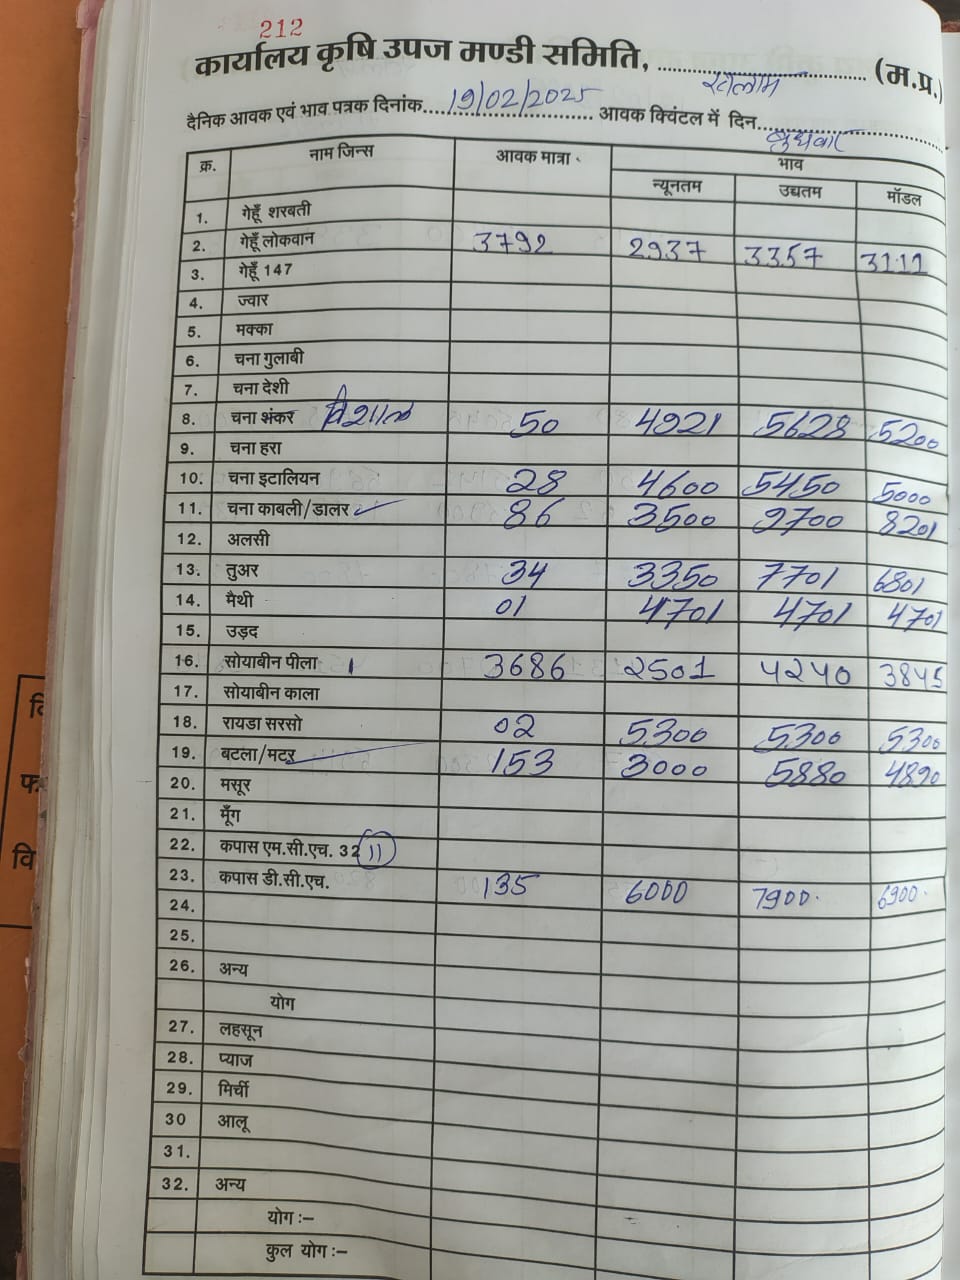 212
कार्यालय कृषि उपज मण्डी समिति, रतलाम (म.प्र.)
दैनिक आवक एवं भाव पत्रक दिनांक 19/02/2025 आवक क्विंटल में दिन बुधवार
क्र. नाम जिन्स आवक मात्रा भाव
न्यूनतम उच्चतम मॉडल
1. गेहूँ शरबती
2. गेहूँ लोकवान 3792 2937 3357 3111
3. गेहूँ 147
4. ज्वार
5. मक्का
6. चना गुलाबी
7. चना देशी
8. चना शंकर विशाल 50 4921 5628 5200
9. चना हरा
10. चना इटालियन 28 4600 5450 5000
11. चना काबली/डालर 86 3500 9700 8201
12. अलसी
13. तुअर 34 3350 7701 6801
14. मैथी 01 4701 4701 4701
15. उड़द
16. सोयाबीन पीला 3686 2501 4240 3845
17. सोयाबीन काला
18. रायडा सरसो 02 5300 5300 5300
19. बटला/मटर 153 3000 5880 4890
20. मसूर
21. मूँग
22. कपास एम.सी.एच. 32 11
23. कपास डी.सी.एच. 135 6000 7900 6900
24.
25.
26. अन्य
योग
27. लहसून
28. प्याज
29. मिर्ची
30 आलू
31.
32. अन्य
योग :–
कुल योग :–